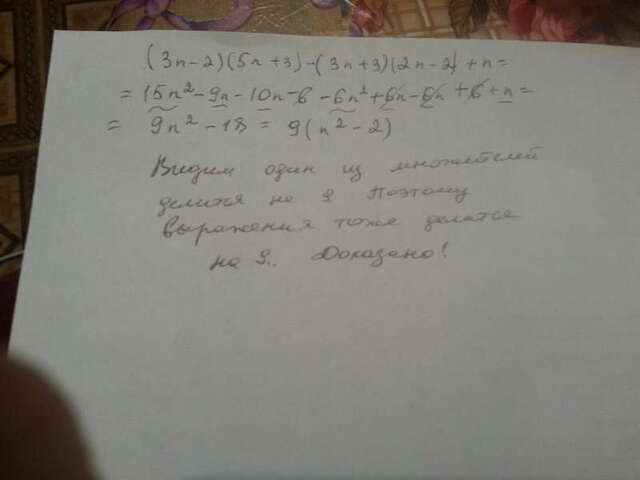 (3n-2)(5n+3)-(3n+3)(2n-2)+n=
=15n²-9n-10n-6-6n²+6n-6n+6+n=
= 9n²-18 = 9(n²-2)
Видим один из множителей
делится на 9 Поэтому
выражения тоже делятся
на 9. Доказано!